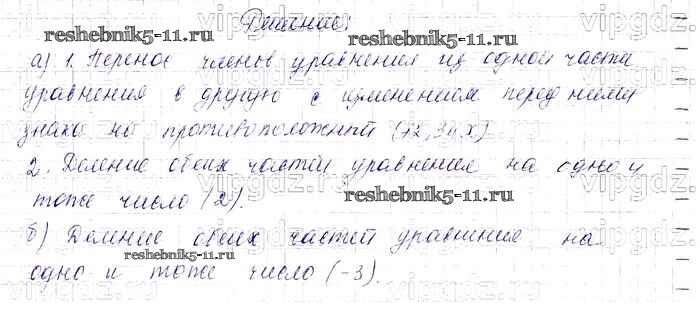 Решение:
reshebnik5-11.ru
а) 1. Перенос членов уравнения из одной части
уравнения в другую с изменением перед ними
знака на противоположный
2. Деление обеих частей уравнения на одно и
тоже число (2).
reshebnik5-11.ru
б) Деление обеих частей уравнение на
reshebnik5-11.ru
одно и тоже число (-3).